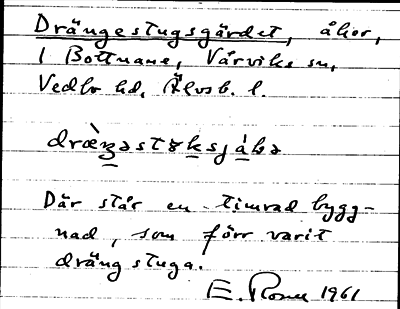 Drängestugsgärdet, åkor,
1 Bottnane, Vårviks sn,
Vedbo hd, Älvsb. l.
Där står en timrad bygg-
nad, som förr varit
drängstuga.
E. Rosen 1961